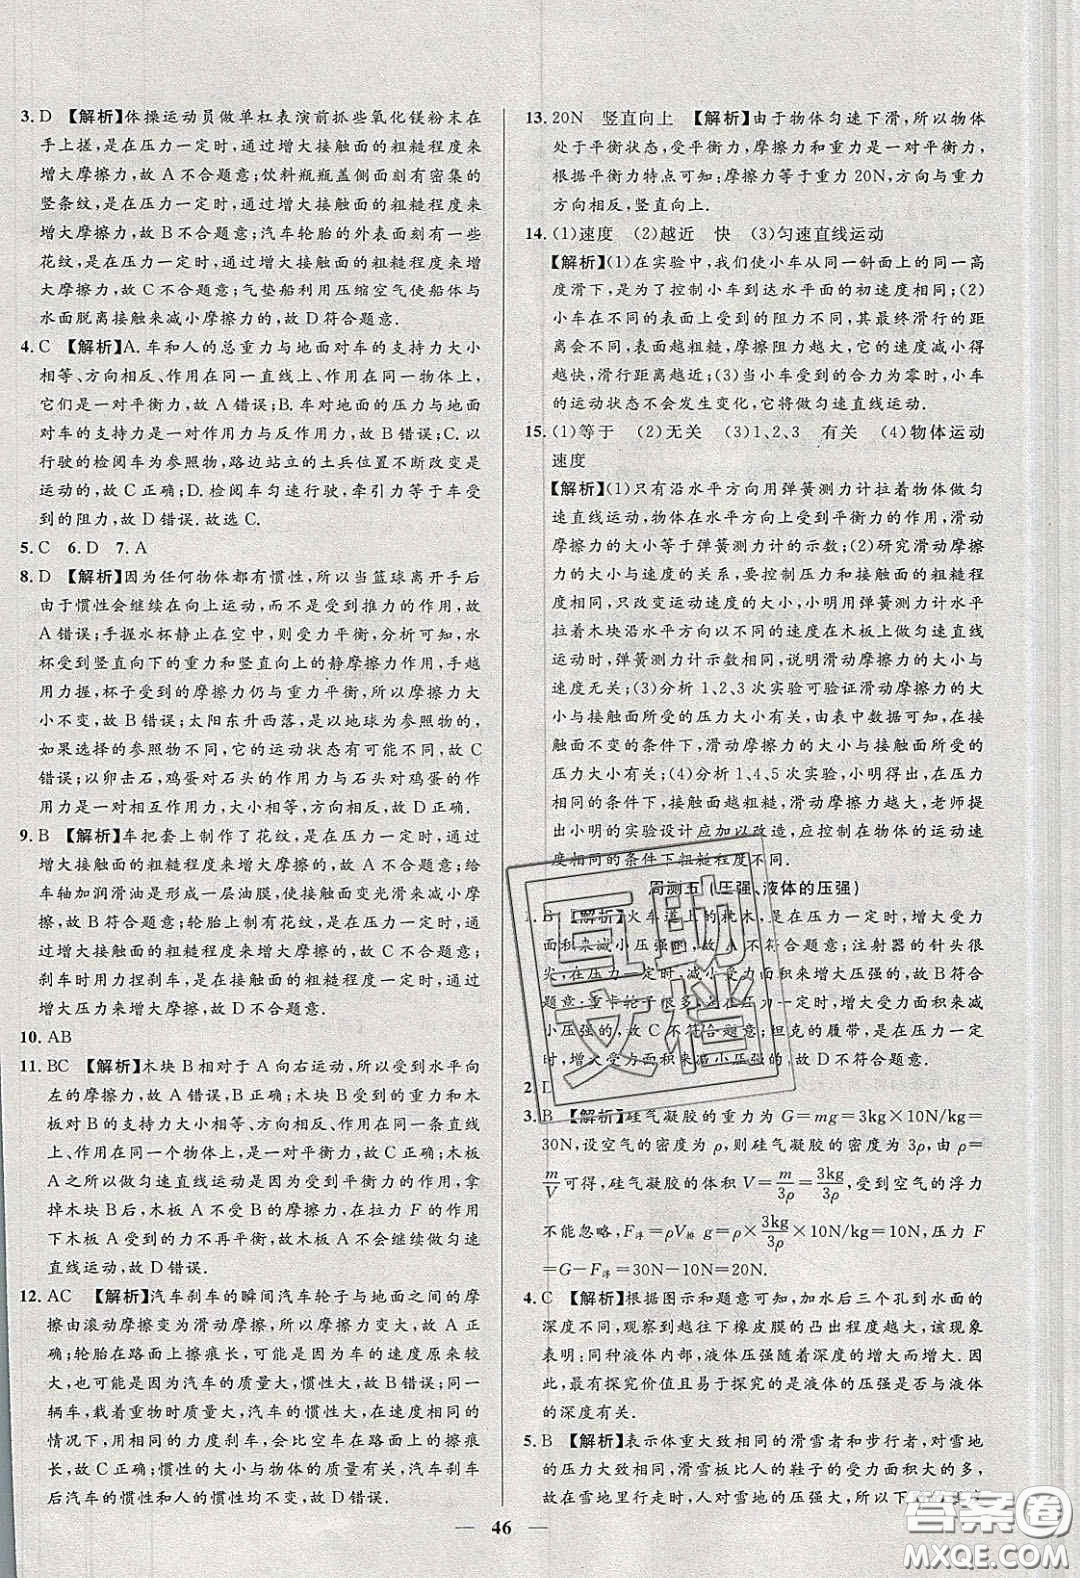 3. D 【解析】体操运动员做单杠表演前抓些氧化镁粉末在
手上搓，是在压力一定时，通过增大接触面的粗糙程度来
增大摩擦力，故 A 不合题意；饮料瓶瓶盖侧面有密集的
竖条纹，是在压力一定时，通过增大接触面的粗糙程度来
增大摩擦力，故 B 不合题意；汽车轮胎的外表面有一些
花纹，是在压力一定时，通过增大接触面的粗糙程度来增
大摩擦力，故 C 不合题意；气垫船利用压缩空气使船体与
水面脱离接触来减小摩擦力的，故 D 符合题意．
4. C 【解析】A. 车和人的总重力与地面对车的支持力大小
相等、方向相反、作用在同一直线上、作用在同一物体上，
它们是一对平衡力，故 A 错误；B. 车对地面的压力与地面
对车的支持力是一对相互作用力，故 B 错误；C. 以
行驶的检阅车为参照物，路边站立的士兵位置不断改变是
运动的，故 C 正确；D. 检阅车匀速行驶，牵引力等于车受
到的阻力，故 D 错误. 故选 C.
5. C 6. D 7. A
8. D 【解析】因为任何物体都有惯性，所以当篮球离开手后
由于惯性会继续在向上运动，而不是受到推力的作用，故
A 错误；手握水杯静止在空中，则受力平衡，分析可知，水
杯受到竖直向下的重力和竖直向上的静摩擦力作用，手越
用力握，杯子受到的摩擦力仍与重力平衡，故摩擦力大
小不变，故 B 错误；太阳东升西落，是以地球为参照物的，
如果选择的参照物不同，它的运动状态有可能不同，故 C
错误；以卵击石，鸡蛋对石头的作用力与石头对鸡蛋的作
用力是一对相互作用力，大小相等，方向相反，故 D 正确．
9. B 【解析】车把套上制作了花纹，是在压力一定时，通过
增大接触面的粗糙程度来增大摩擦力，故 A 不合题意；给
车轴加润滑油是形成一层油膜，使接触面分离来减小摩擦
的，故 B 符合题意；轮胎上制有花纹，是在压力一定时，通
过增大接触面的粗糙程度来增大摩擦力，故 C 不合题意；
刹车时用力捏刹车，是在接触面粗糙程度一定时，通过增
大压力来增大摩擦力的，故 D 不合题意．
10. AB
11. BC 【解析】木块 B 相对于 A 向右运动，所以受到水平向
左的摩擦力，故 A 错误，B 正确；木块 B 受到的重力和木
板对 B 的支持力大小相等、方向相反、作用在一条直线
上、作用在同一个物体上，是一对平衡力，故 C 正确；木板
A 之所以做匀速直线运动，是因为受到力平衡的作用，拿
掉木块 B 后，木板 A 没有 B 的摩擦力，在拉力 F 的作用
下木板 A 受到的力不再平衡，故木板 A 不会继续做匀速
直线运动，故 D 错误．
12. AC 【解析】汽车刹车的瞬间汽车轮子与地面之间的摩
擦由滚动摩擦变为滑动摩擦，所以摩擦力变大，故 A 正
确；轮胎在路面上擦痕长，可能是因为车的速度比较大，
也可能是因为汽车的质量大，惯性大，故 B 错误；同一
辆车，载着重物时质量大，汽车的惯性大，在速度相同的
情况下，用相同的力度刹车，会比空车在路面上的擦痕
长，故 C 正确；惯性的大小与物体的质量有关，汽车刹车后
后汽车的惯性和人的惯性均不变，故 D 错误．
13. 20N 竖直向上 【解析】由于物体匀速下滑，所以物体
处于平衡状态，受平衡力，摩擦力和重力是一对平衡力，
根据平衡力特点可知：摩擦力等于重力 20N，与重力
方向相反，竖直向上．
14. (1)速度 (2)越近 快 (3)匀速直线运动
【解析】(1)在实验中，我们使小车从同一斜面上的同一高
度滑下，是为了控制小车到达水平面的初速度相同；(2)
小车在不同的表面上受到的阻力不同，其最终滑行的距
离也不同，表面越粗糙，摩擦阻力越大，小车的速度减小得
越快，滑行距离越近；(3)当小车受到的合力为零时，小车
的运动状态不会发生变化，它将做匀速直线运动．
15. (1)等于 (2)无关 (3)1、2、3 有关 (4)物体运动
速度
【解析】(1)只有沿水平方向用弹簧测力计拉着物体做匀
速直线运动，物体在水平方向上受到平衡力的作用，滑动
摩擦力的大小等于弹簧测力计的示数；(2)研究滑动摩擦
力的大小与速度的关系，要控制压力和接触面的粗糙程
度相同，只改变运动速度的大小，小明用弹簧测力计水平
拉着木块沿水平方向以不同的速度在木板上做匀速直线
运动，弹簧测力计示数相同，说明滑动摩擦力的大小与
速度无关；(3)分析 1、2、3 次实验可验证滑动摩擦力的大
小与接触面所受的压力大小有关，由表中数据可知，在接
触面不变的条件下，滑动摩擦力的大小与接触面所受的压
力有关；(4)分析 1、4、5 次实验，小明得出，在压力
相同的条件下，接触面越粗糙，滑动摩擦力越大，老师提
出小明的实验设计应加以改造，应控制在物体的运动速
度相同的条件下粗糙程度不同．
周测五(压强、液体的压强)
1. B 【解析】火车道上的枕木，是在压力一定时，增大受力
面积来减小压强的，故 A 不符合题意；注射器的针头很
尖，在压力一定时，减小受力面积来增大压强的，故 B 符合
题意；重卡轮子很多，在压力一定时，增大受力面积来减
小压强的，故 C 不符合题意；坦克的履带，是在压力一定
时，增大受力面积来减小压强的，故 D 不符合题意．
2. D
3. B 【解析】硅气凝胶的重力为 G＝mg＝3kg×10N/kg＝
30N，设空气的密度为 ρ，则硅气凝胶的密度为 3ρ，由 ρ＝
m/V 可得，硅气凝胶的体积 V＝m/3ρ＝3kg/3ρ，受到空气的浮力
不能忽略，F浮＝ρV排 g＝ρ×3kg/3ρ×10N/kg＝10N，压力 F
＝G－F浮＝30N－10N＝20N.
4. C 【解析】根据图示和题意可知，加水后三个孔到水面的
深度不同，观察到越往下橡皮膜的凸出程度越大，该现象
表明：同种液体内部，液体压强随着深度的增大而增大.
因此，首先探究价值且易于探究的是液体的压强是否与液体
的深度有关．
5. B 【解析】表示体重大致相同的滑雪者和步行者，对雪地
的压力大致相同，滑雪板比人的鞋子的受力面积大的多，
故在雪地里行走时，人对雪地的压强大，所以下
46
互助文档
答案圈
MXQE.COM